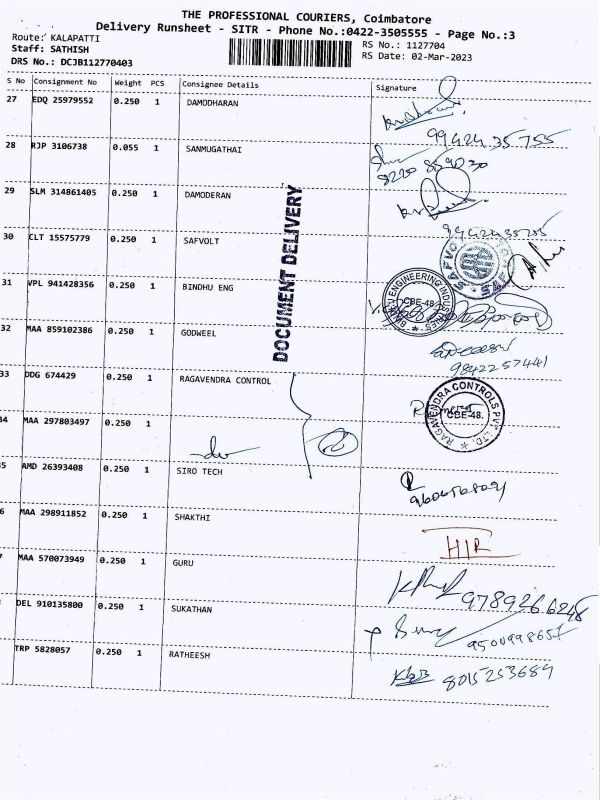 THE PROFESSIONAL COURIERS, Coimbatore
Delivery Runsheet - SITR - Phone No.:0422-3505555 - Page No.:3
Route: KALAPATTI
RS No.: 1127704
Staff: SATHISH
RS Date: 02-Mar-2023
DRS No.: DCJB112770403
S No Consignment No Weight PCS Consignee Details Signature
27 EDQ 25979552 0.250 1 DAMODHARAN
99424 35755
28 RJP 3106738 0.055 1 SANMUGATHAI
29 SLM 314861405 0.250 1 DAMODERAN
30 CLT 15575779 0.250 1 SAFVOLT
31 VPL 941428356 0.250 1 BINDHU ENG
BINDHU ENGINEERING INDUSTRIES
CBE-48
32 MAA 859102386 0.250 1 GODWEEL
98422 57441
DOCUMENT DELIVERY
33 DDG 674429 0.250 1 RAGAVENDRA CONTROL
RAGAVENDRA CONTROLS PVT. LTD.
CBE-48.
34 MAA 297803497 0.250 1
-do-
5 AMD 26393408 0.250 1 SIRO TECH
6 MAA 298911852 0.250 1 SHAKTHI
HIR
7 MAA 570073949 0.250 1 GURU
978926 6248
DEL 910135800 0.250 1 SUKATHAN
9500998657
TRP 5828057 0.250 1 RATHEESH
8015253689